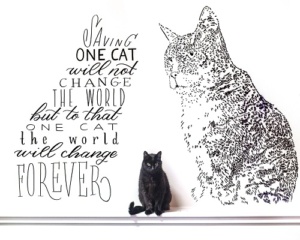 SAVING
ONE CAT
will not
CHANGE
THE WORLD
but to that
ONE CAT
the world
will change
FOREVER